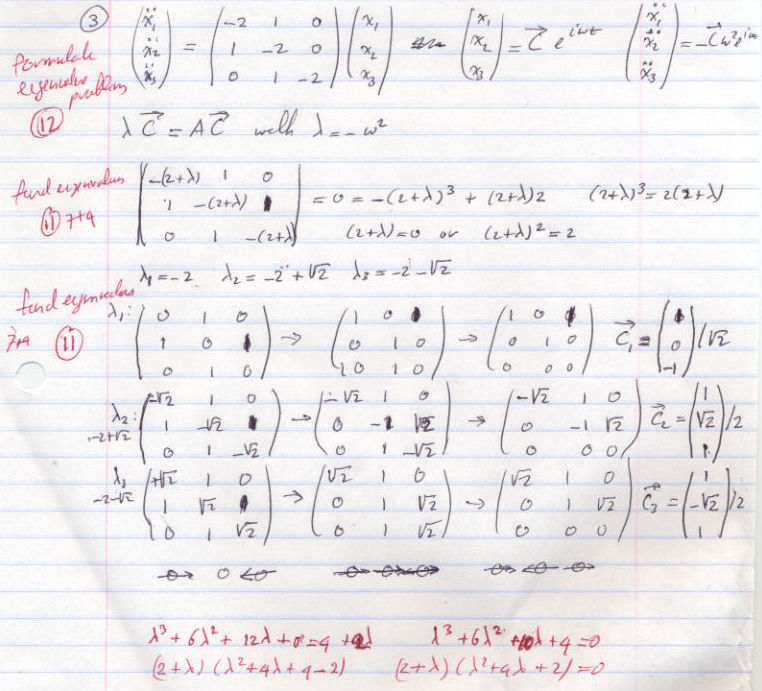 ③ (ẍ₁ ẍ₂ ẍ₃) = (-2 1 0; 1 -2 0; 0 1 -2) (x₁ x₂ x₃) (x₁ x₂ x₃) = C⃗ e^{iωt} (ẍ₁ ẍ₂ ẍ₃) = -C⃗ω²e^{iω
formulate
eigenvalue
problem
⑫ λC⃗ = AC⃗ with λ = -ω²
find eigenvalues
⑪ 7+4
|-(2+λ) 1 0; 1 -(2+λ) 1; 0 1 -(2+λ)| = 0 = -(2+λ)³ + (2+λ)2 (2+λ)³ = 2(2+λ)
(2+λ) = 0 or (2+λ)² = 2
λ₁ = -2 λ₂ = -2 + √2 λ₃ = -2 - √2
find eigenvectors
7+4 ⑪
λ₁: (0 1 0; 1 0 1; 0 1 0) → (1 0 1; 0 1 0; 0 1 0) → (1 0 1; 0 1 0; 0 0 0) C⃗₁ = (1 0 -1)/√2
λ₂: -2+√2 (-√2 1 0; 1 -√2 1; 0 1 -√2) → (-√2 1 0; 0 -1 √2; 0 1 -√2) → (-√2 1 0; 0 -1 √2; 0 0 0) C⃗₂ = (1 √2 1)/2
λ₃ -2-√2 (+√2 1 0; 1 √2 1; 0 1 √2) → (√2 1 0; 0 1 √2; 0 1 √2) → (√2 1 0; 0 1 √2; 0 0 0) C⃗₃ = (1 -√2 1)/2
λ³ + 6λ² + 12λ + 8 = 4 + 2λ λ³ + 6λ² + 10λ + 4 = 0
(2+λ) (λ² + 4λ + 4 - 2) (2+λ) (λ² + 4λ + 2) = 0